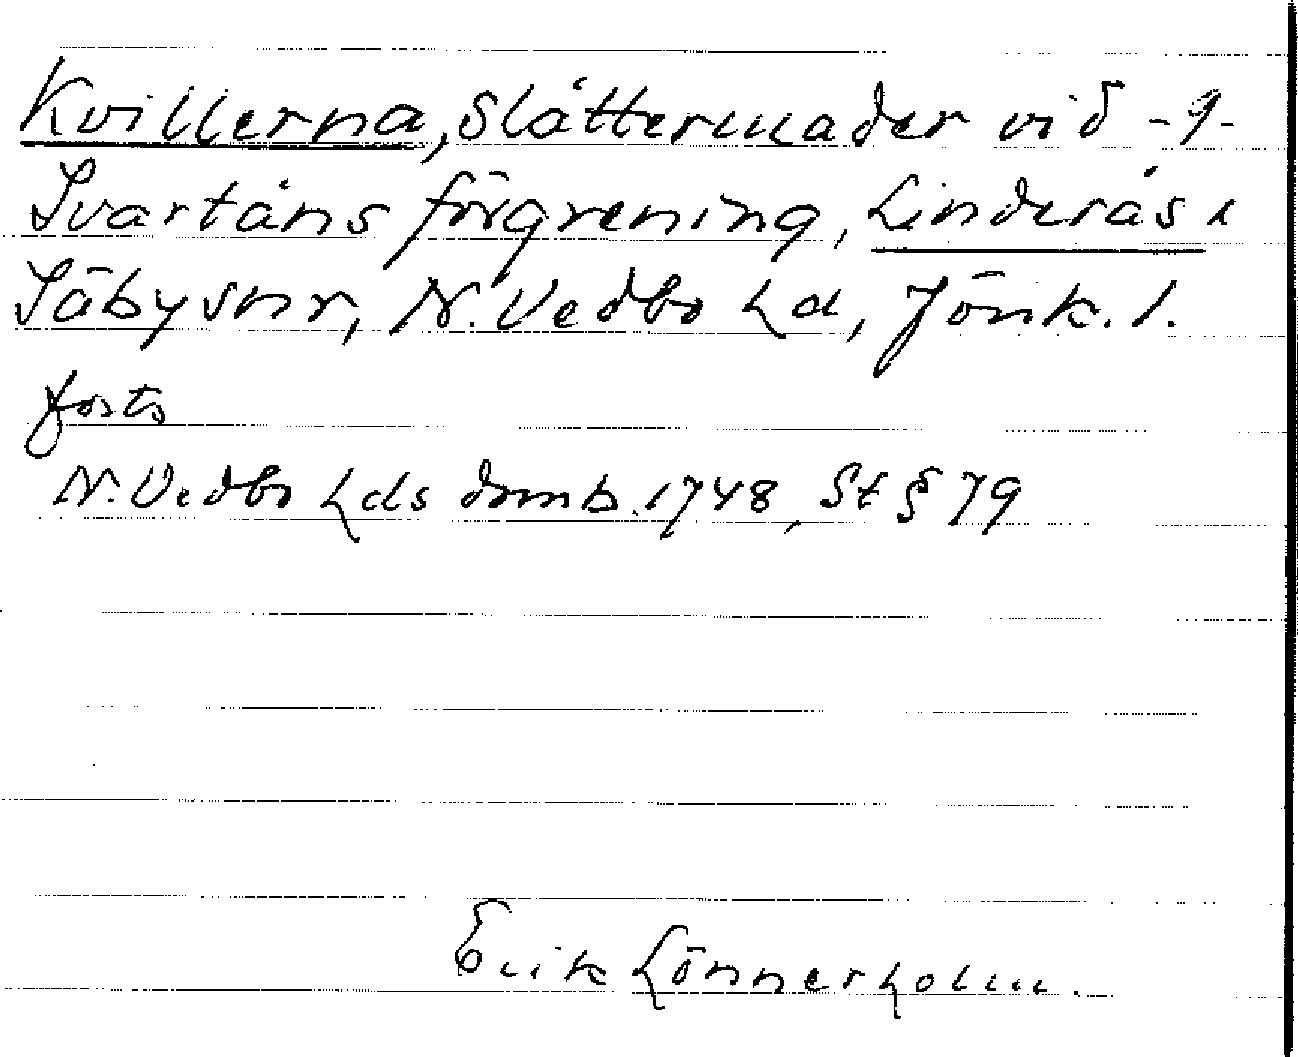 Kvillerna, Slåttermader vid -9-
Svartåns förgrening, Linderås i
Säby snr, N. Vedbo hd, Jönk. l.
forts
N. Vedbo hds domb. 1748, St § 79
Erik Lönnerholm.